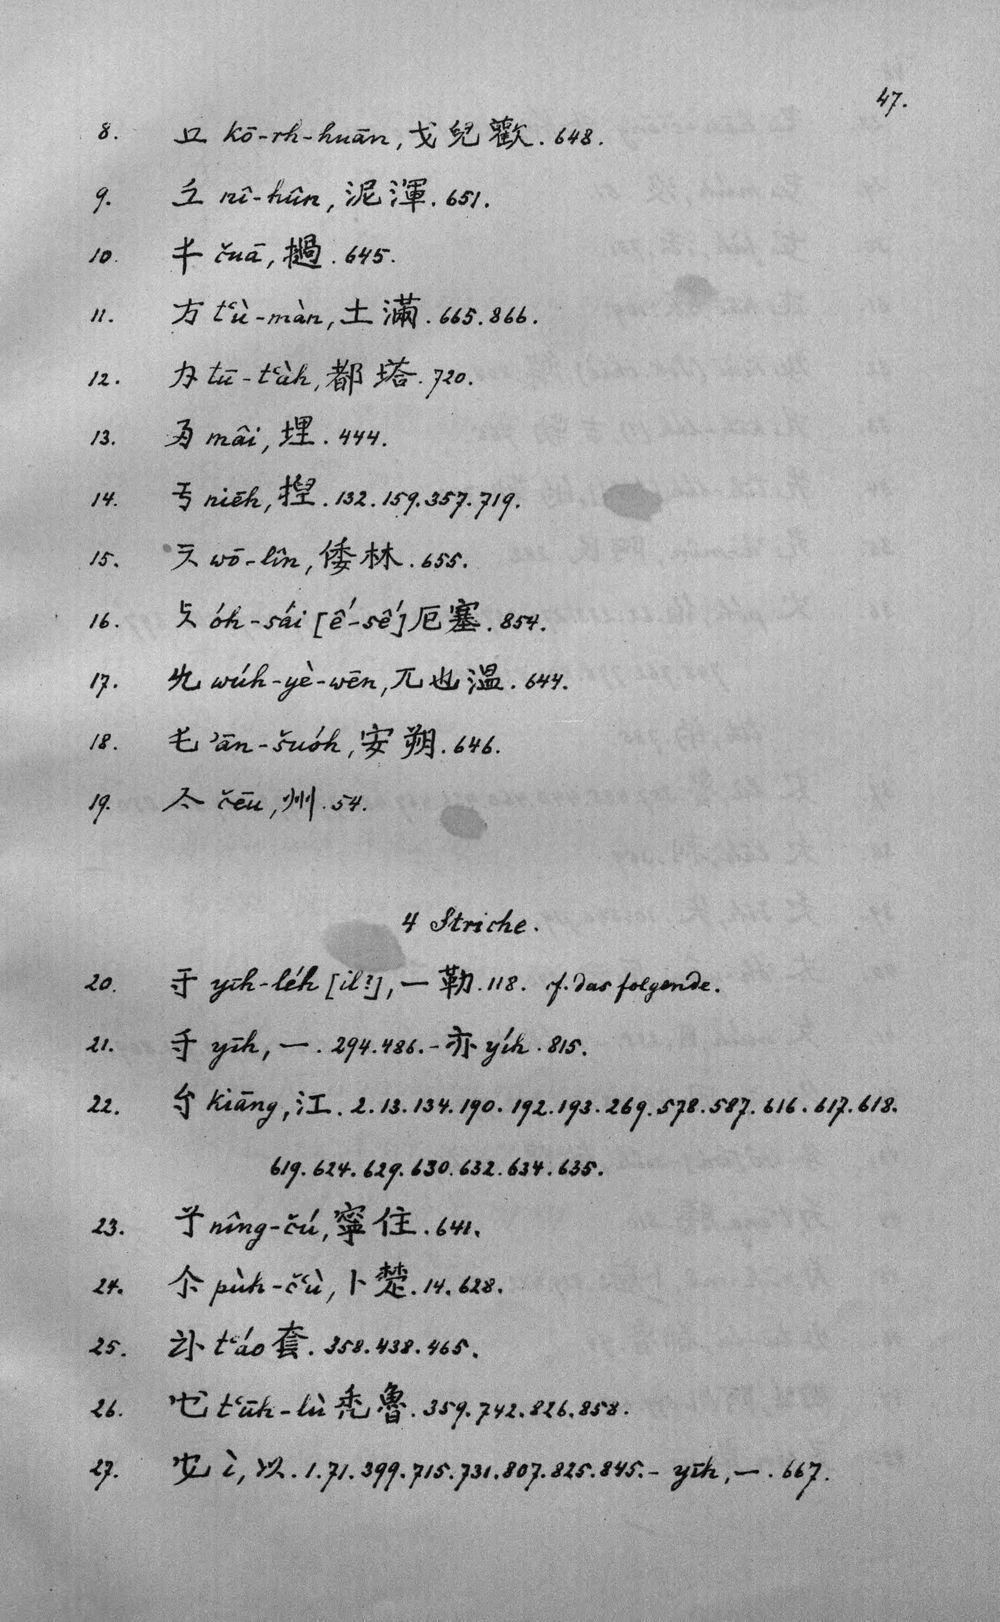 47.
8. kō-rh-huān, 戈兒歡. 648.
9. nî-hûn, 泥渾. 651.
10. čuā, 撾. 645.
11. t‛ù-màn, 土滿. 665. 866.
12. tū-t‛àh, 都塔. 720.
13. mâi, 埋. 444.
14. niēh, 揑. 132. 159. 357. 719.
15. wō-lîn, 倭林. 655.
16. óh-sái [ế-sế] 厄塞. 854.
17. wúh-yè-wēn, 兀也溫. 644.
18. ’ān-šuóh, 安朔. 646.
19. čēu, 州. 54.
4 Striche.
20. yīh-léh [il?], 一勒. 118. cf. das folgende.
21. yīh, 一. 294. 486. - 亦 yíh. 815.
22. kiāng, 江. 2. 13. 134. 190. 192. 193. 269. 578. 587. 616. 617. 618.
619. 624. 629. 630. 632. 634. 635.
23. nîng-čú, 寧住. 641.
24. pùh-č‛ù, 卜楚. 14. 628.
25. t‛áo 套. 358. 438. 465.
26. t‛ūh-lù 禿魯. 359. 742. 826. 858.
27. ì, 以. 1. 71. 399. 715. 731. 807. 825. 845. - yīh, 一. 667.